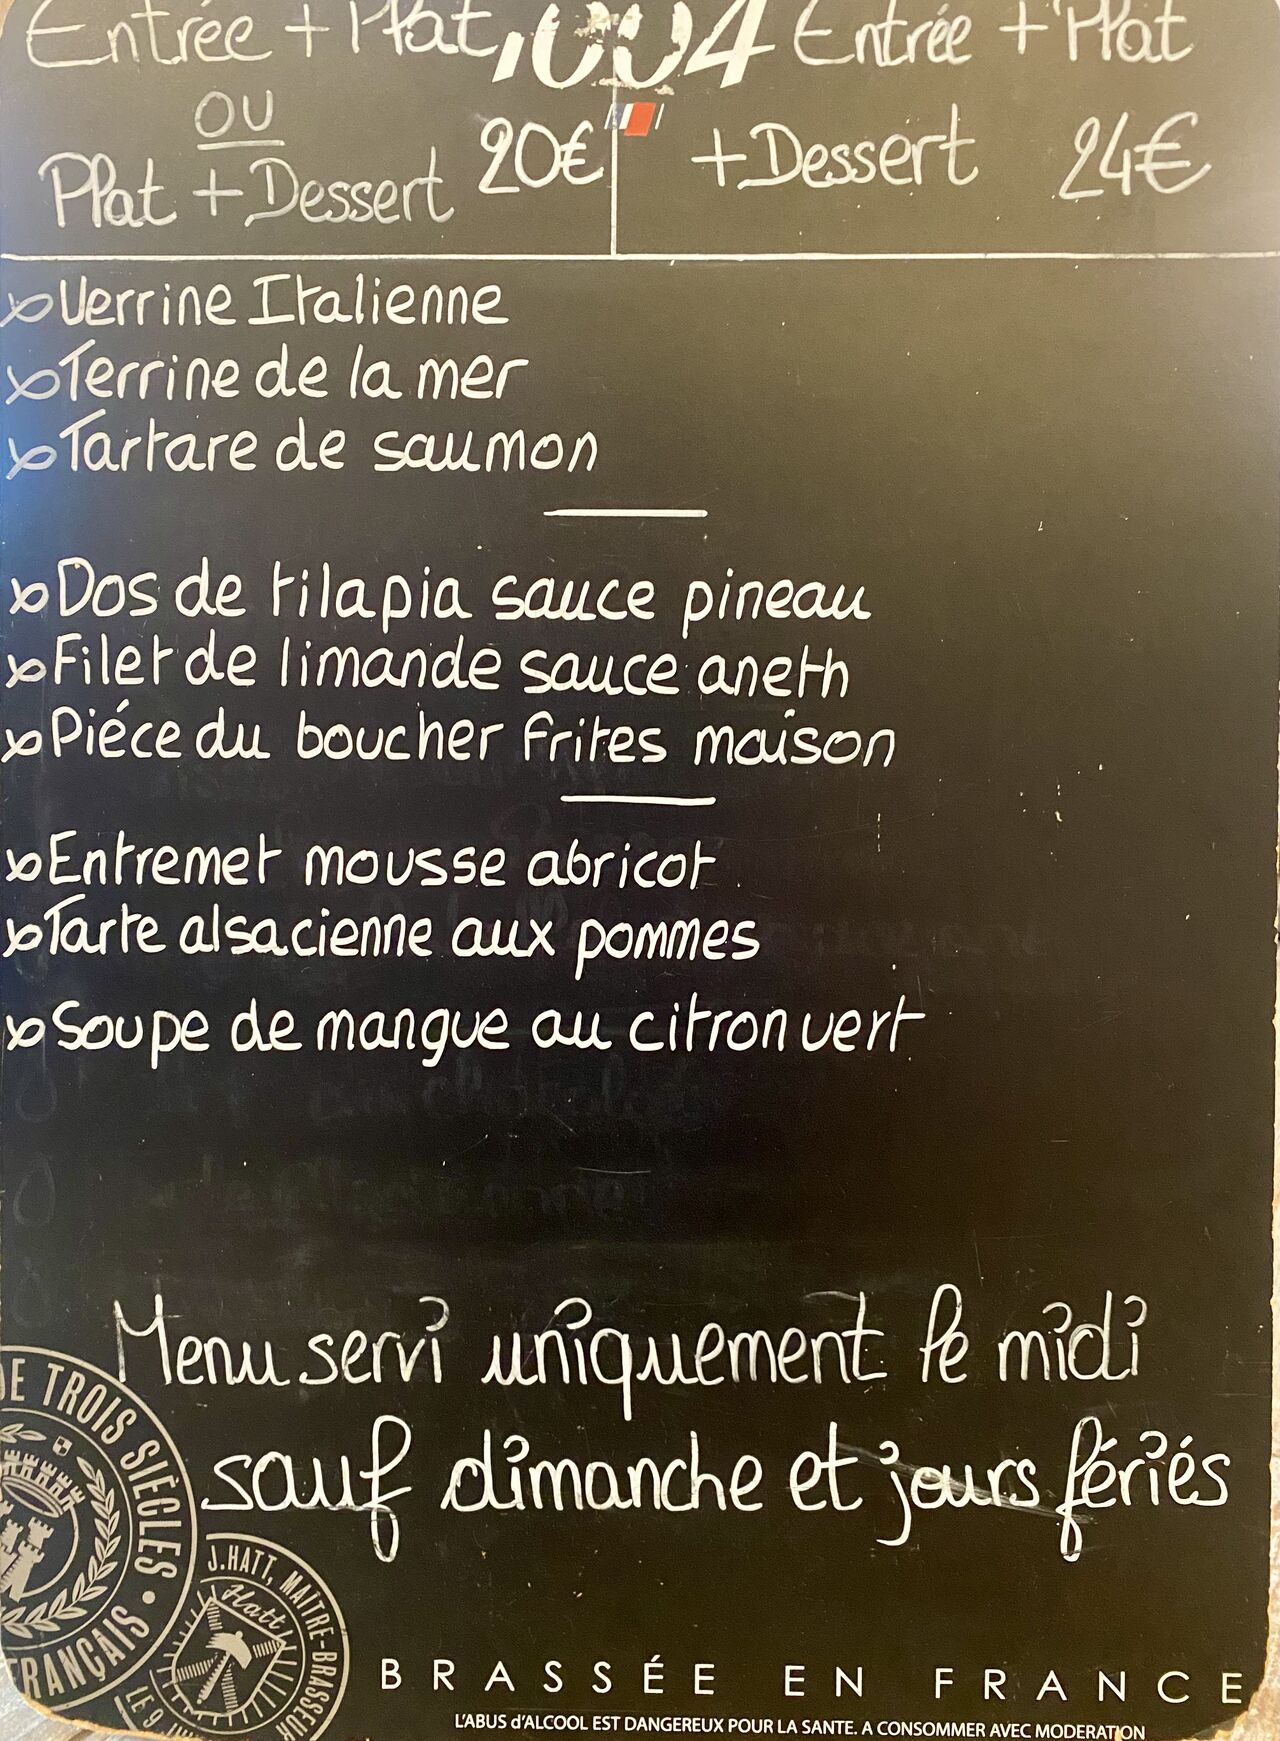 Entrée + Plat
ou
Plat + Dessert 20€
Entrée + Plat
+ Dessert 24€
Verrine Italienne
Terrine de la mer
Tartare de saumon
Dos de tilapia sauce pineau
Filet de limande sauce aneth
Piéce du boucher frites maison
Entremet mousse abricot
Tarte alsacienne aux pommes
Soupe de mangue au citron vert
Menu servi uniquement le midi
sauf dimanche et jours fériés
DE TROIS SIÈCLES •
FRANÇAIS
J.HATT, MAÎTRE-BRASSEUR
Hatt
LE 9
BRASSÉE EN FRANCE
L'ABUS d'ALCOOL EST DANGEREUX POUR LA SANTE. A CONSOMMER AVEC MODERATION